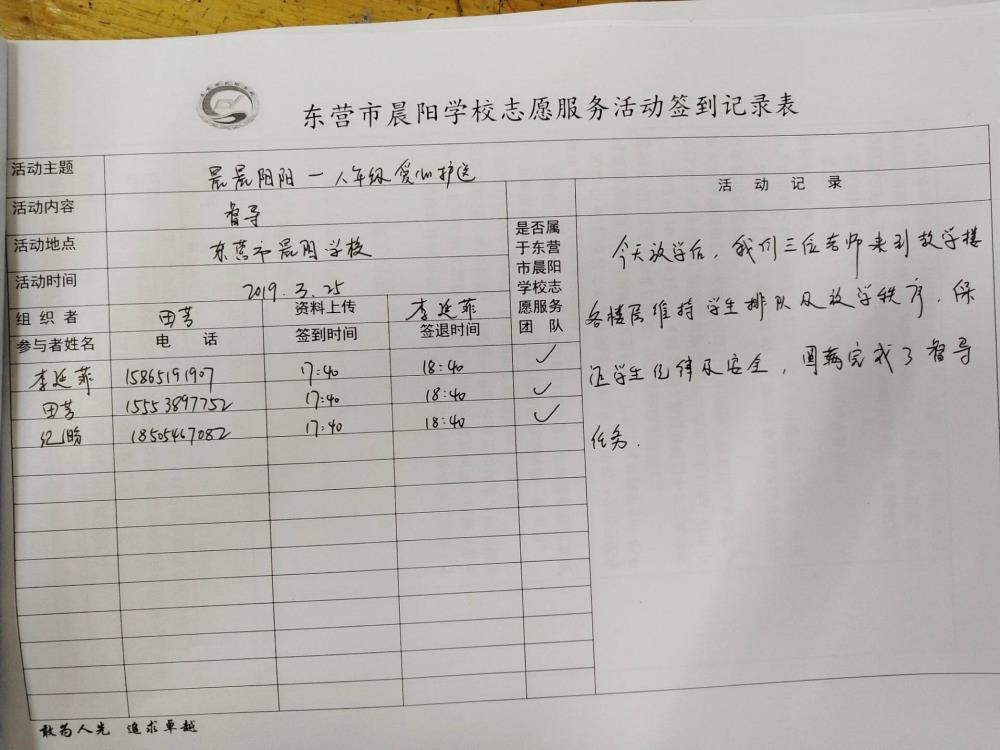 东营市晨阳学校志愿服务活动签到记录表
活动主题 晨晨阳阳一人年级爱心护送
活动内容 督导
活动地点 东营市晨阳学校
活动时间 2019.3.25
组织者 田芳 资料上传 李延菲
是否属于东营市晨阳学校志愿服务团队
参与者姓名 电话 签到时间 签退时间
李延菲 15865191907 17:40 18:40 ✓
田芳 15553897752 17:40 18:40 ✓
纪 18505467082 17:40 18:40 ✓
活动记录
今天放学后，我们三位老师来到教学楼
各楼层维持学生排队及放学秩序，保
证学生纪律及安全，圆满完成了督导
任务.
敢为人先 追求卓越